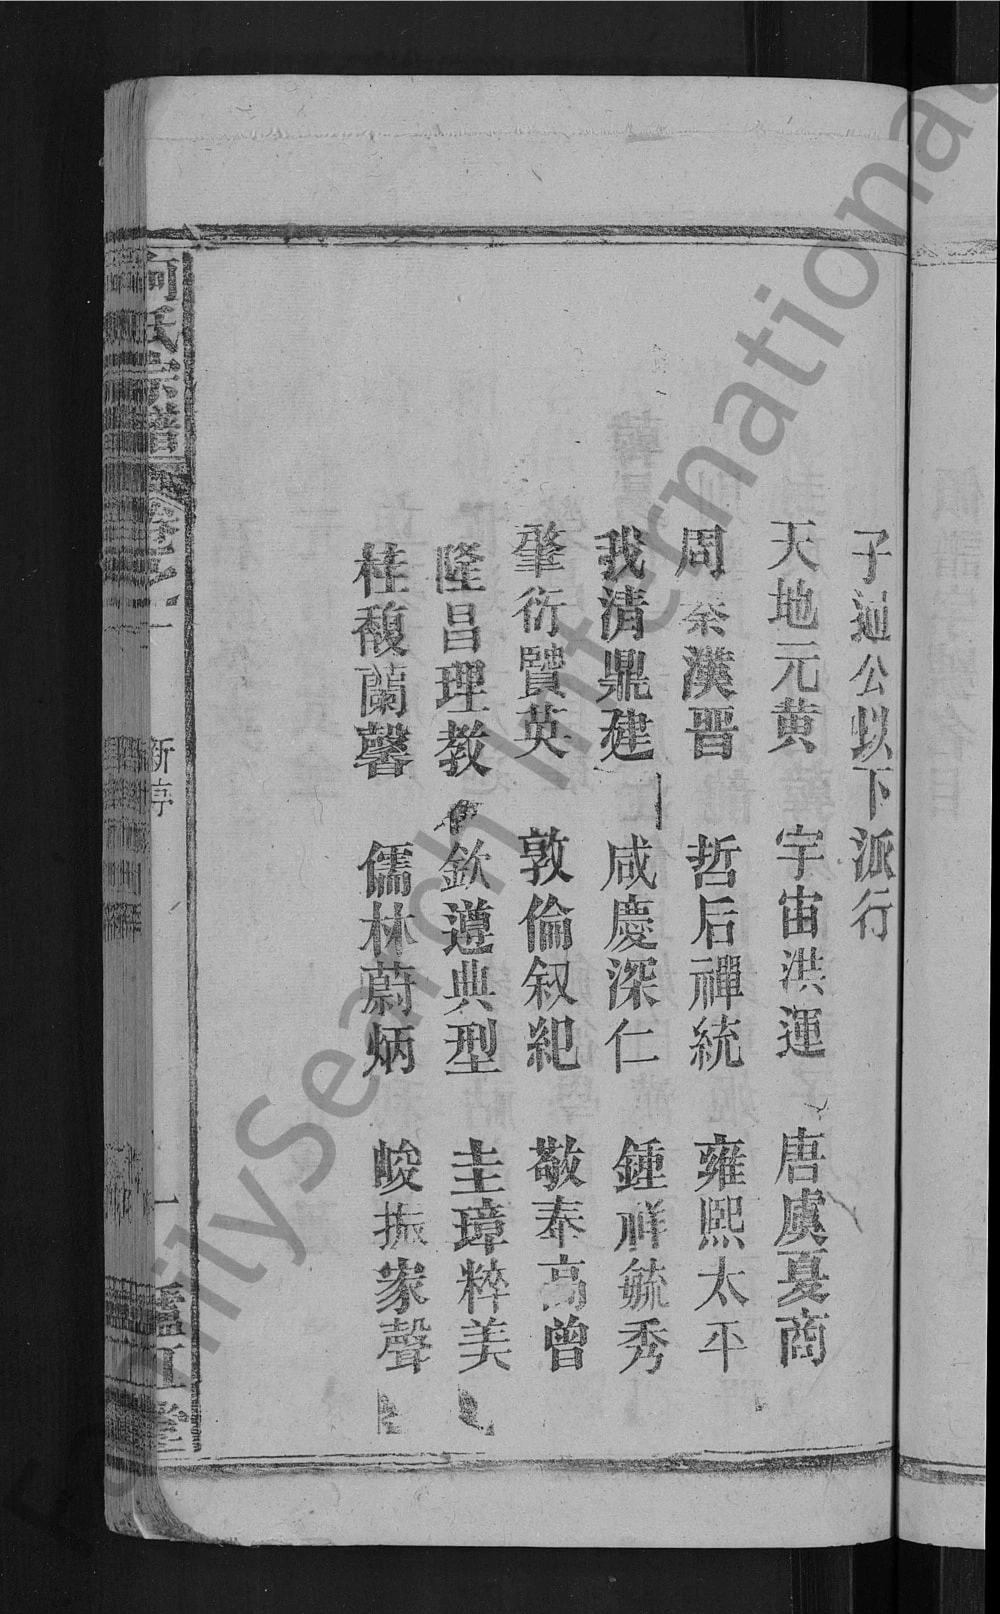 子迪公以下派行
天地元黄　宇宙洪運　唐虞夏商
周秦漢晋　哲后禪統　雍熙太平
我清鼎建　咸慶深仁　鍾祥毓秀
肇衍賢英　敦倫叙紀　敬奉高曾
隆昌理教　欽遵典型　圭璋粹美
桂馥蘭馨　儒林蔚炳　峻振家聲
何氏宗譜　新序　一　廬江堂
FamilySearch International